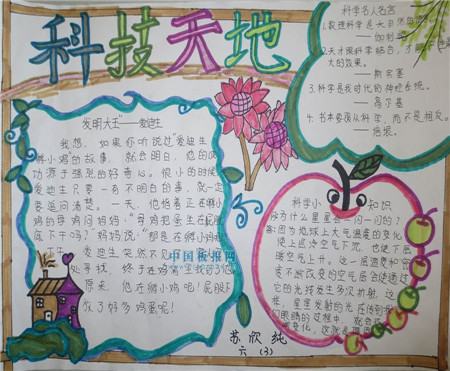 科技天地
科学名人名言
1.数理科学是大自然
——伽利
2.天才跟科学结合,才
大的效果。
——斯宾塞
3.科学是我时代的神经系统。
——高尔基
4.书本要服从科学,而不是相反。
——培根
发明大王——爱迪生
我想,如果你听说过“爱迪生
孵小鸡的故事,就会明白,他的成
功源于强烈的好奇心。很小的时候
爱迪生只要一有不明白的事,就一定
要追问清楚。一天,他指着正在孵小
鸡的母鸡问妈妈:“母鸡把蛋坐在屁股
底下干吗?妈妈说:“那是在孵小鸡
爱迪生突然不见
处寻找,终于在鸡窝里找到了他
原来,他在孵小鸡呢!屁股下
放了好多鸡蛋呢!
中国板报网
科学小知识
为什么星星会一闪一闪的?
答:因为地球上大气温度的变化
使上点冷空气下沉,也使下层
暖空气上升。这一层温度和密
度不断改变的空气层会使通过
它的光持发生多次折射。这
样,星星发射的光在传到我
们眼睛的过程中,就会
变化,这就是
苏欣纯
六(3)